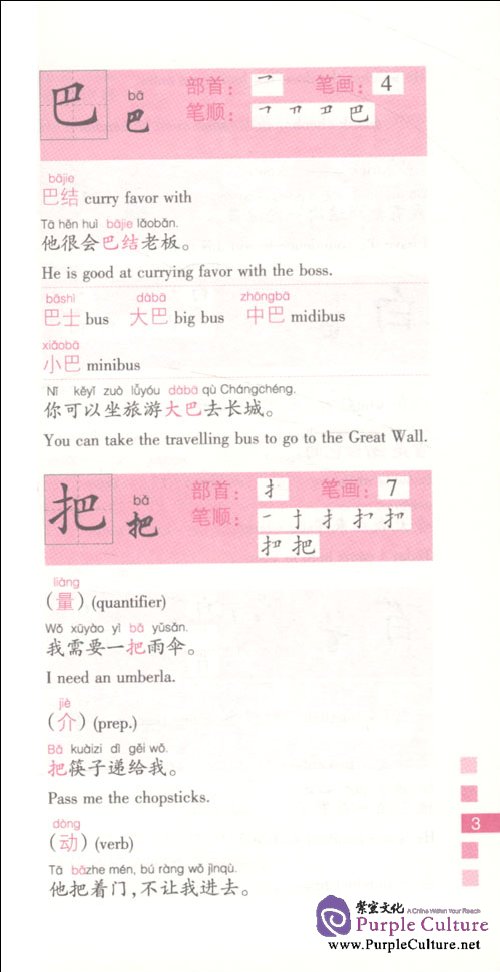 巴 bā 巴 部首： 乛 笔画： 4
笔顺： 巴
bājie
巴结 curry favor with
Tā hěn huì bājie lǎobǎn.
他很会巴结老板。
He is good at currying favor with the boss.
bāshì dàbā zhōngbā
巴士 bus 大巴 big bus 中巴 midibus
xiǎobā
小巴 minibus
Nǐ kěyǐ zuò lǚyóu dàbā qù Chángchéng.
你可以坐旅游大巴去长城。
You can take the travelling bus to go to the Great Wall.
把 bǎ 把 部首： 扌 笔画： 7
笔顺： 一 扌 把
liàng
（量） (quantifier)
Wǒ xūyào yì bǎ yǔsǎn.
我需要一把雨伞。
I need an umberla.
jiè
（介） (prep.)
Bǎ kuàizi dì gěi wǒ.
把筷子递给我。
Pass me the chopsticks.
dòng
（动） (verb)
Tā bǎzhe mén, bú ràng wǒ jìnqù.
他把着门，不让我进去。
3
紫室文化 A China Within Your Reach
Purple Culture
www.PurpleCulture.net